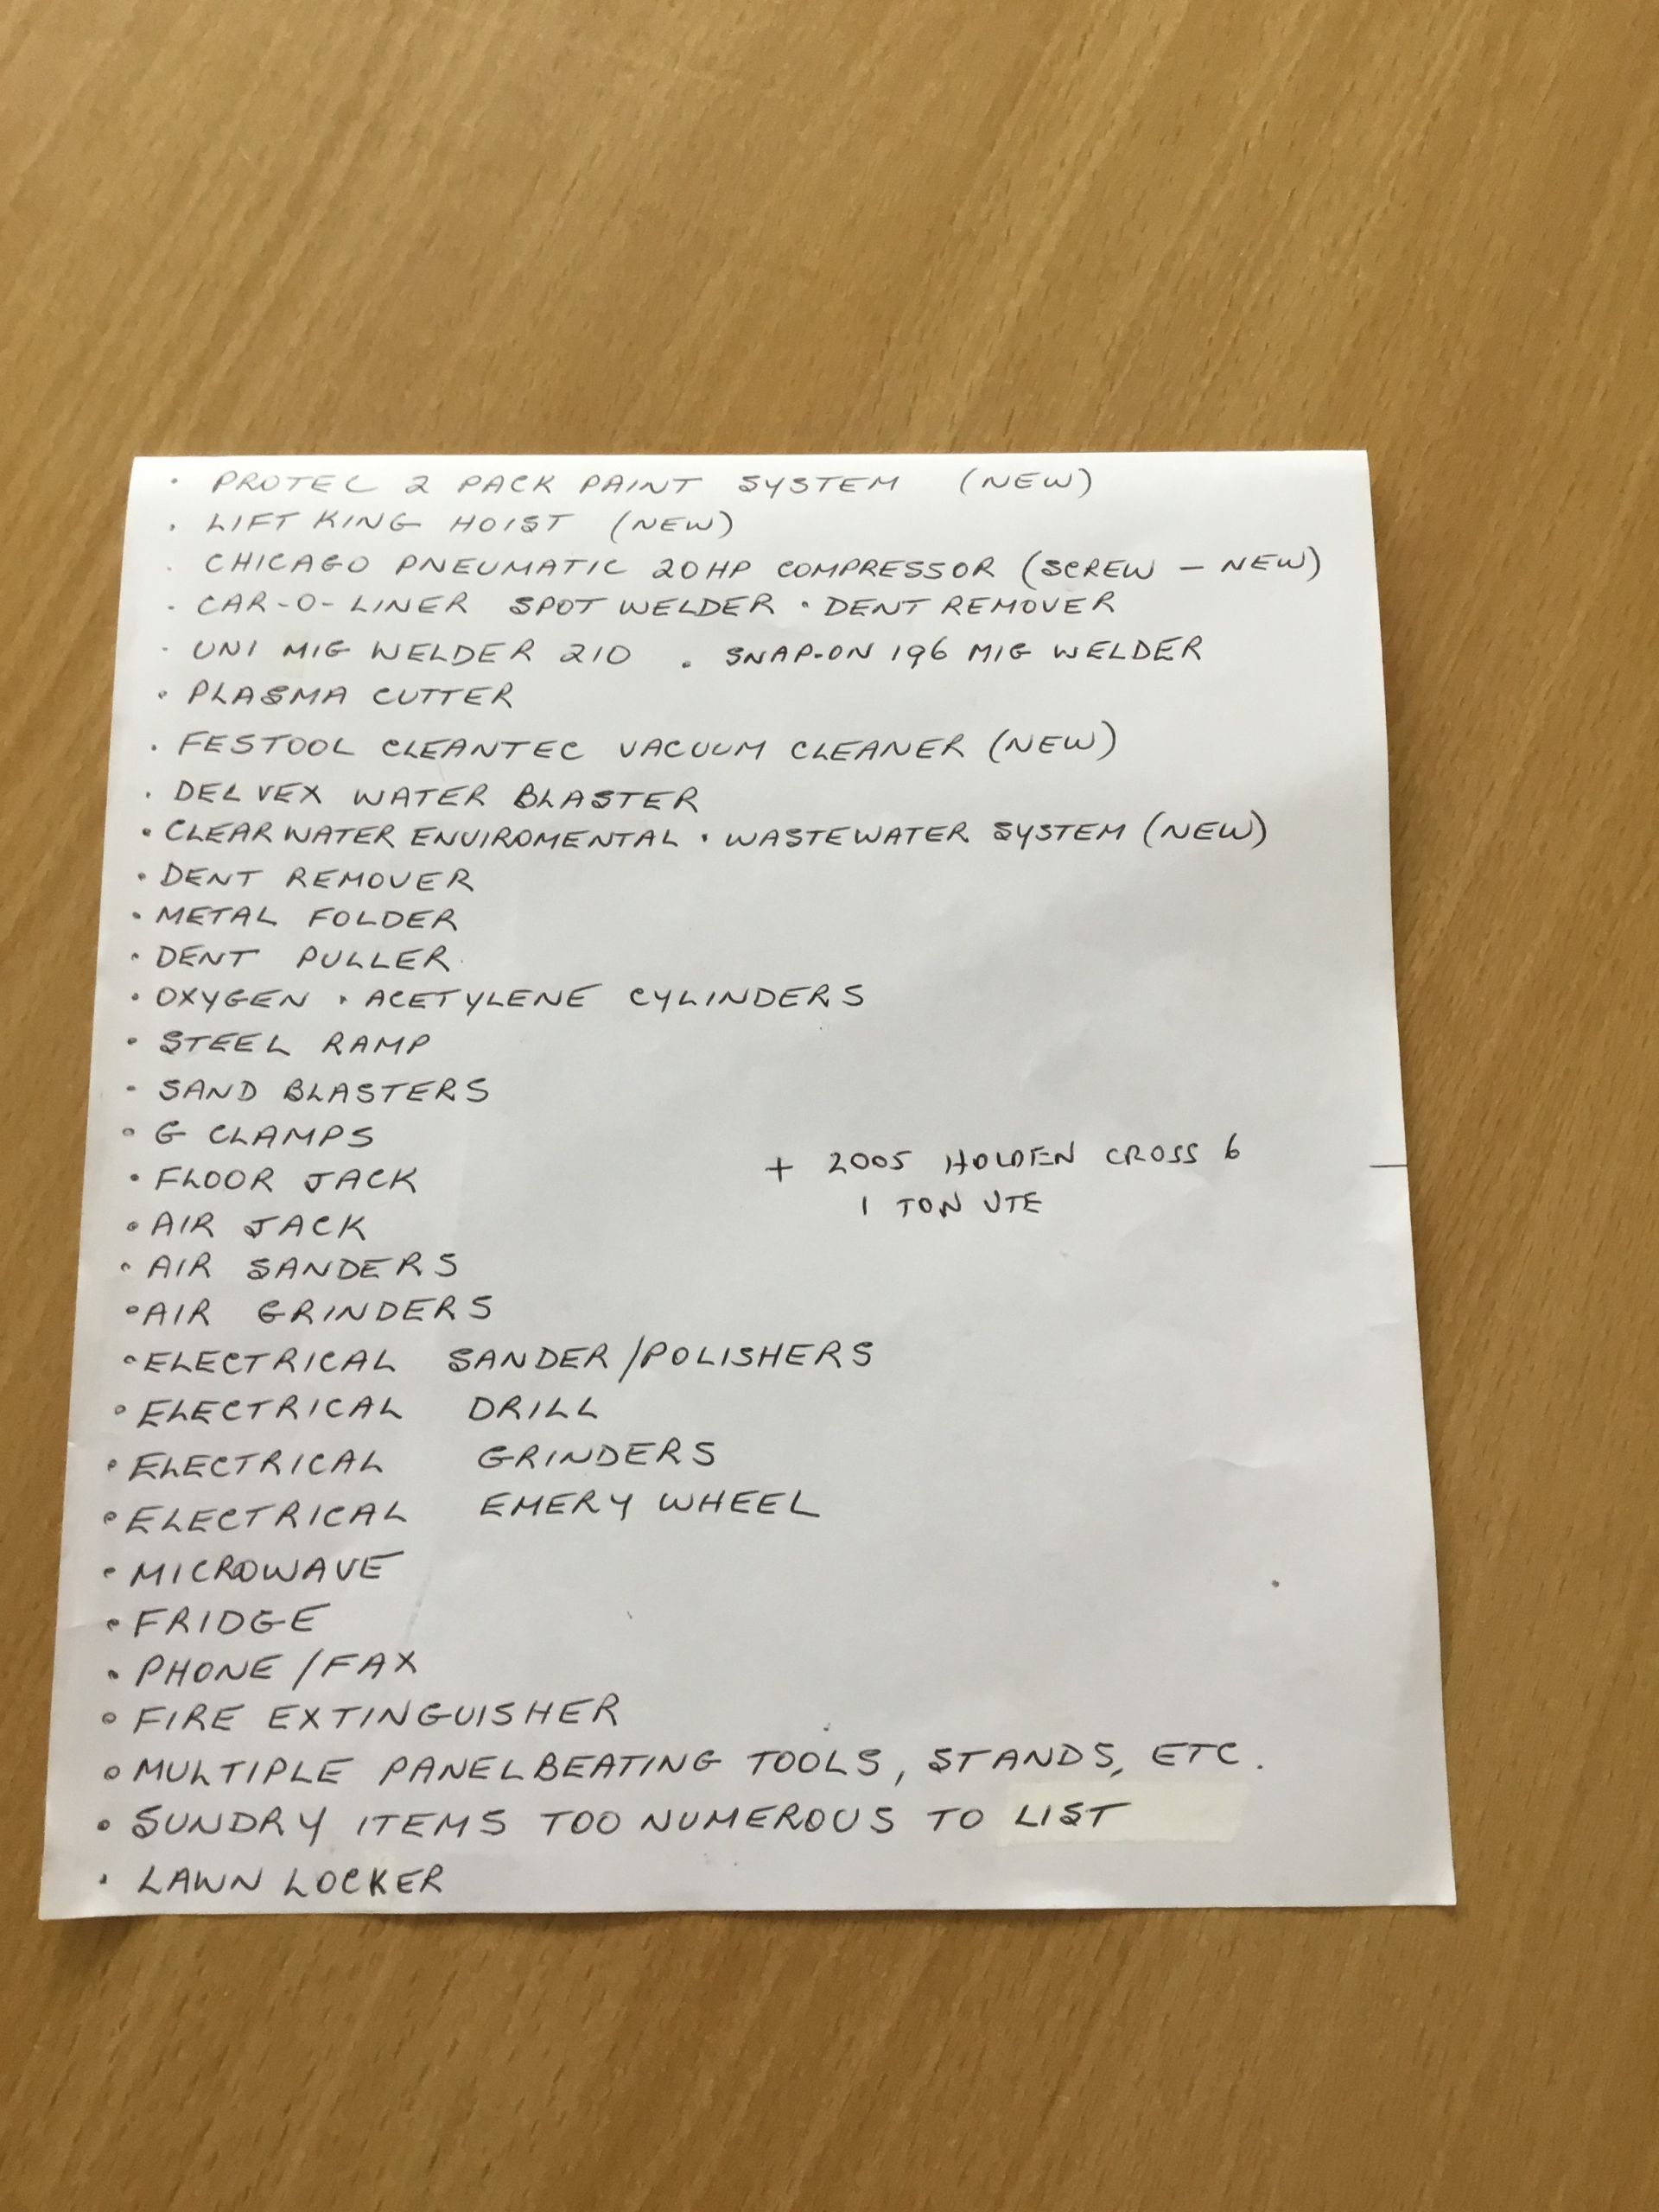 · PROTEC 2 PACK PAINT SYSTEM (NEW)
· LIFT KING HOIST (NEW)
· CHICAGO PNEUMATIC 20HP COMPRESSOR (SCREW – NEW)
· CAR-O-LINER SPOT WELDER · DENT REMOVER
· UNI MIG WELDER 210 · SNAP-ON 196 MIG WELDER
· PLASMA CUTTER
· FESTOOL CLEANTEC VACUUM CLEANER (NEW)
· DELVEX WATER BLASTER
· CLEARWATER ENVIROMENTAL · WASTEWATER SYSTEM (NEW)
· DENT REMOVER
· METAL FOLDER
· DENT PULLER
· OXYGEN · ACETYLENE CYLINDERS
· STEEL RAMP
· SAND BLASTERS
· G CLAMPS
· FLOOR JACK
+ 2005 HOLDEN CROSS 6
1 TON UTE
· AIR JACK
· AIR SANDERS
· AIR GRINDERS
· ELECTRICAL SANDER/POLISHERS
· ELECTRICAL DRILL
· ELECTRICAL GRINDERS
· ELECTRICAL EMERY WHEEL
· MICROWAVE
· FRIDGE
· PHONE/FAX
· FIRE EXTINGUISHER
· MULTIPLE PANELBEATING TOOLS, STANDS, ETC.
· SUNDRY ITEMS TOO NUMEROUS TO LIST
· LAWN LOCKER